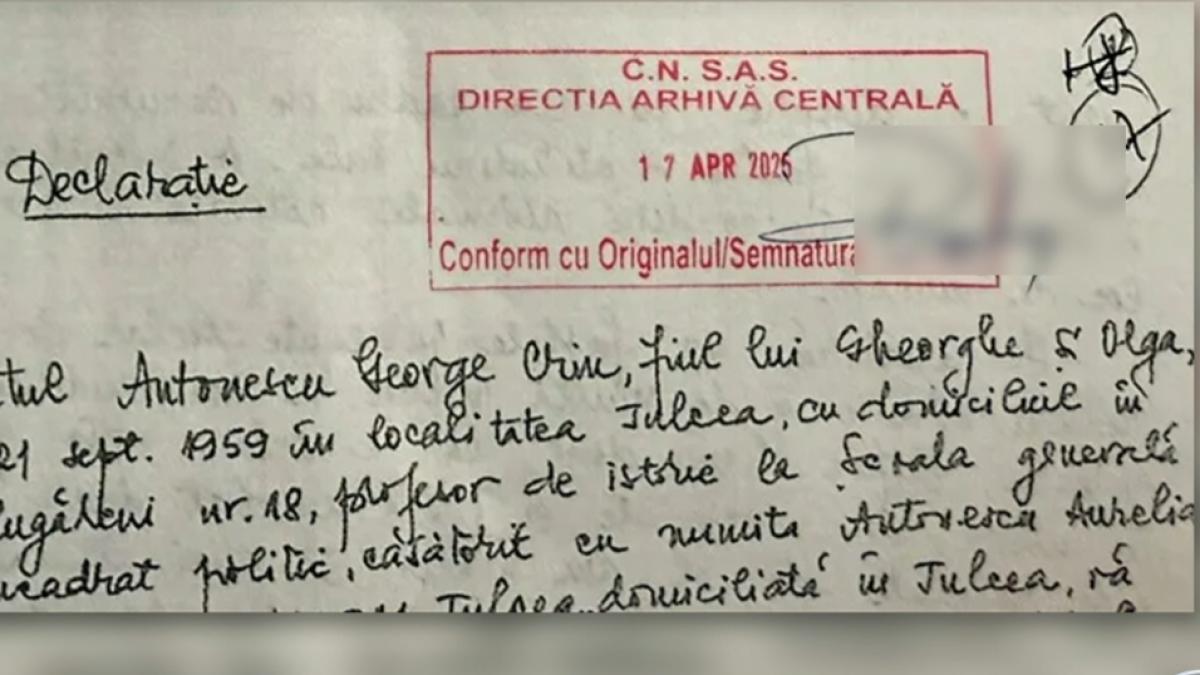 C.N. S.A.S.
DIRECTIA ARHIVĂ CENTRALĂ
17 APR 2025
Declarație
Conform cu Originalul/Semnatura
tul Antonescu George Crin, fiul lui Gheorghe și Olga,
21 sept. 1959 în localitatea Tulcea, cu domiciliul în
nr. 18, profesor de istorie la Școala generală
politic, căsătorit cu numita Antonescu Aurelia
Tulcea, domiciliată în Tulcea, vă